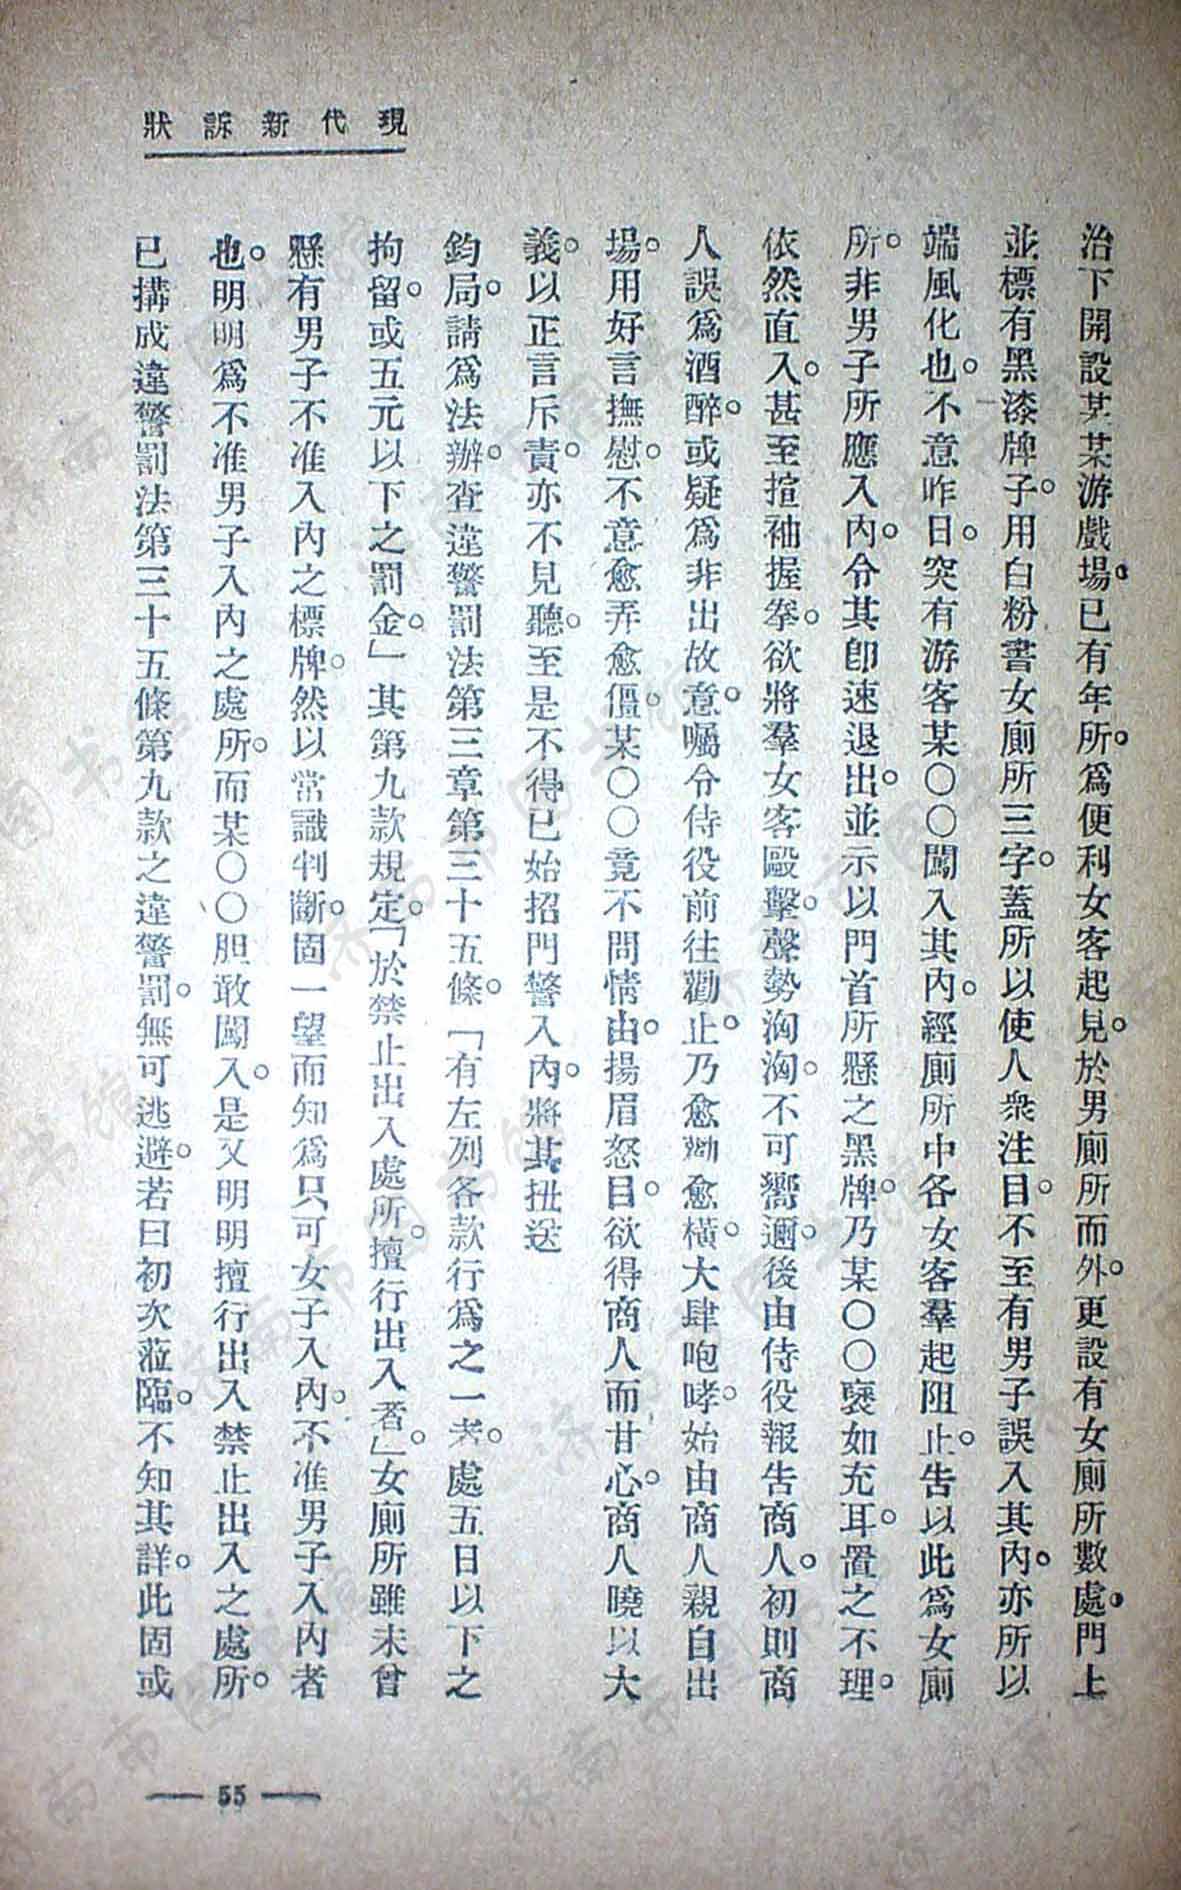 現代新訴狀
治下開設某某游戲場。已有年所。爲便利女客起見。於男廁所而外。更設有女廁所數處。門上
並標有黑漆牌子。用白粉書女廁所三字。蓋所以使人衆注目。不至有男子誤入其內。亦所以
端風化也。不意昨日。突有游客某〇〇闖入其內。經廁所中各女客羣起阻止。告以此爲女廁
所。非男子所應入內。令其卽速退出。並示以門首所懸之黑牌。乃某〇〇褎如充耳。置之不理。
依然直入。甚至揎袖握拳。欲將羣女客毆擊。聲勢洶洶。不可嚮邇。後由侍役報告商人。初則商
人誤爲酒醉。或疑爲非出故意。囑令侍役前往勸止。乃愈勸愈橫。大肆咆哮。始由商人親自出
場。用好言撫慰。不意愈弄愈僵。某〇〇竟不問情由。揚眉怒目。欲得商人而甘心。商人曉以大
義。以正言斥責。亦不見聽。至是不得已始招門警入內。將其扭送
鈞局。請爲法辦。查違警罰法第三章第三十五條。「有左列各款行爲之一者。處五日以下之
拘留。或五元以下之罰金。」其第九款規定。「於禁止出入處所。擅行出入者。」女廁所雖未曾
懸有男子不准入內之標牌。然以常識判斷。固一望而知爲只可女子入內。不准男子入內者
也。明明爲不准男子入內之處所。而某〇〇胆敢闖入。是又明明擅行出入禁止出入之處所。
已搆成違警罰法第三十五條第九款之違警罰。無可逃避。若曰初次蒞臨。不知其詳。此固或
— 55 —
济南市图书馆